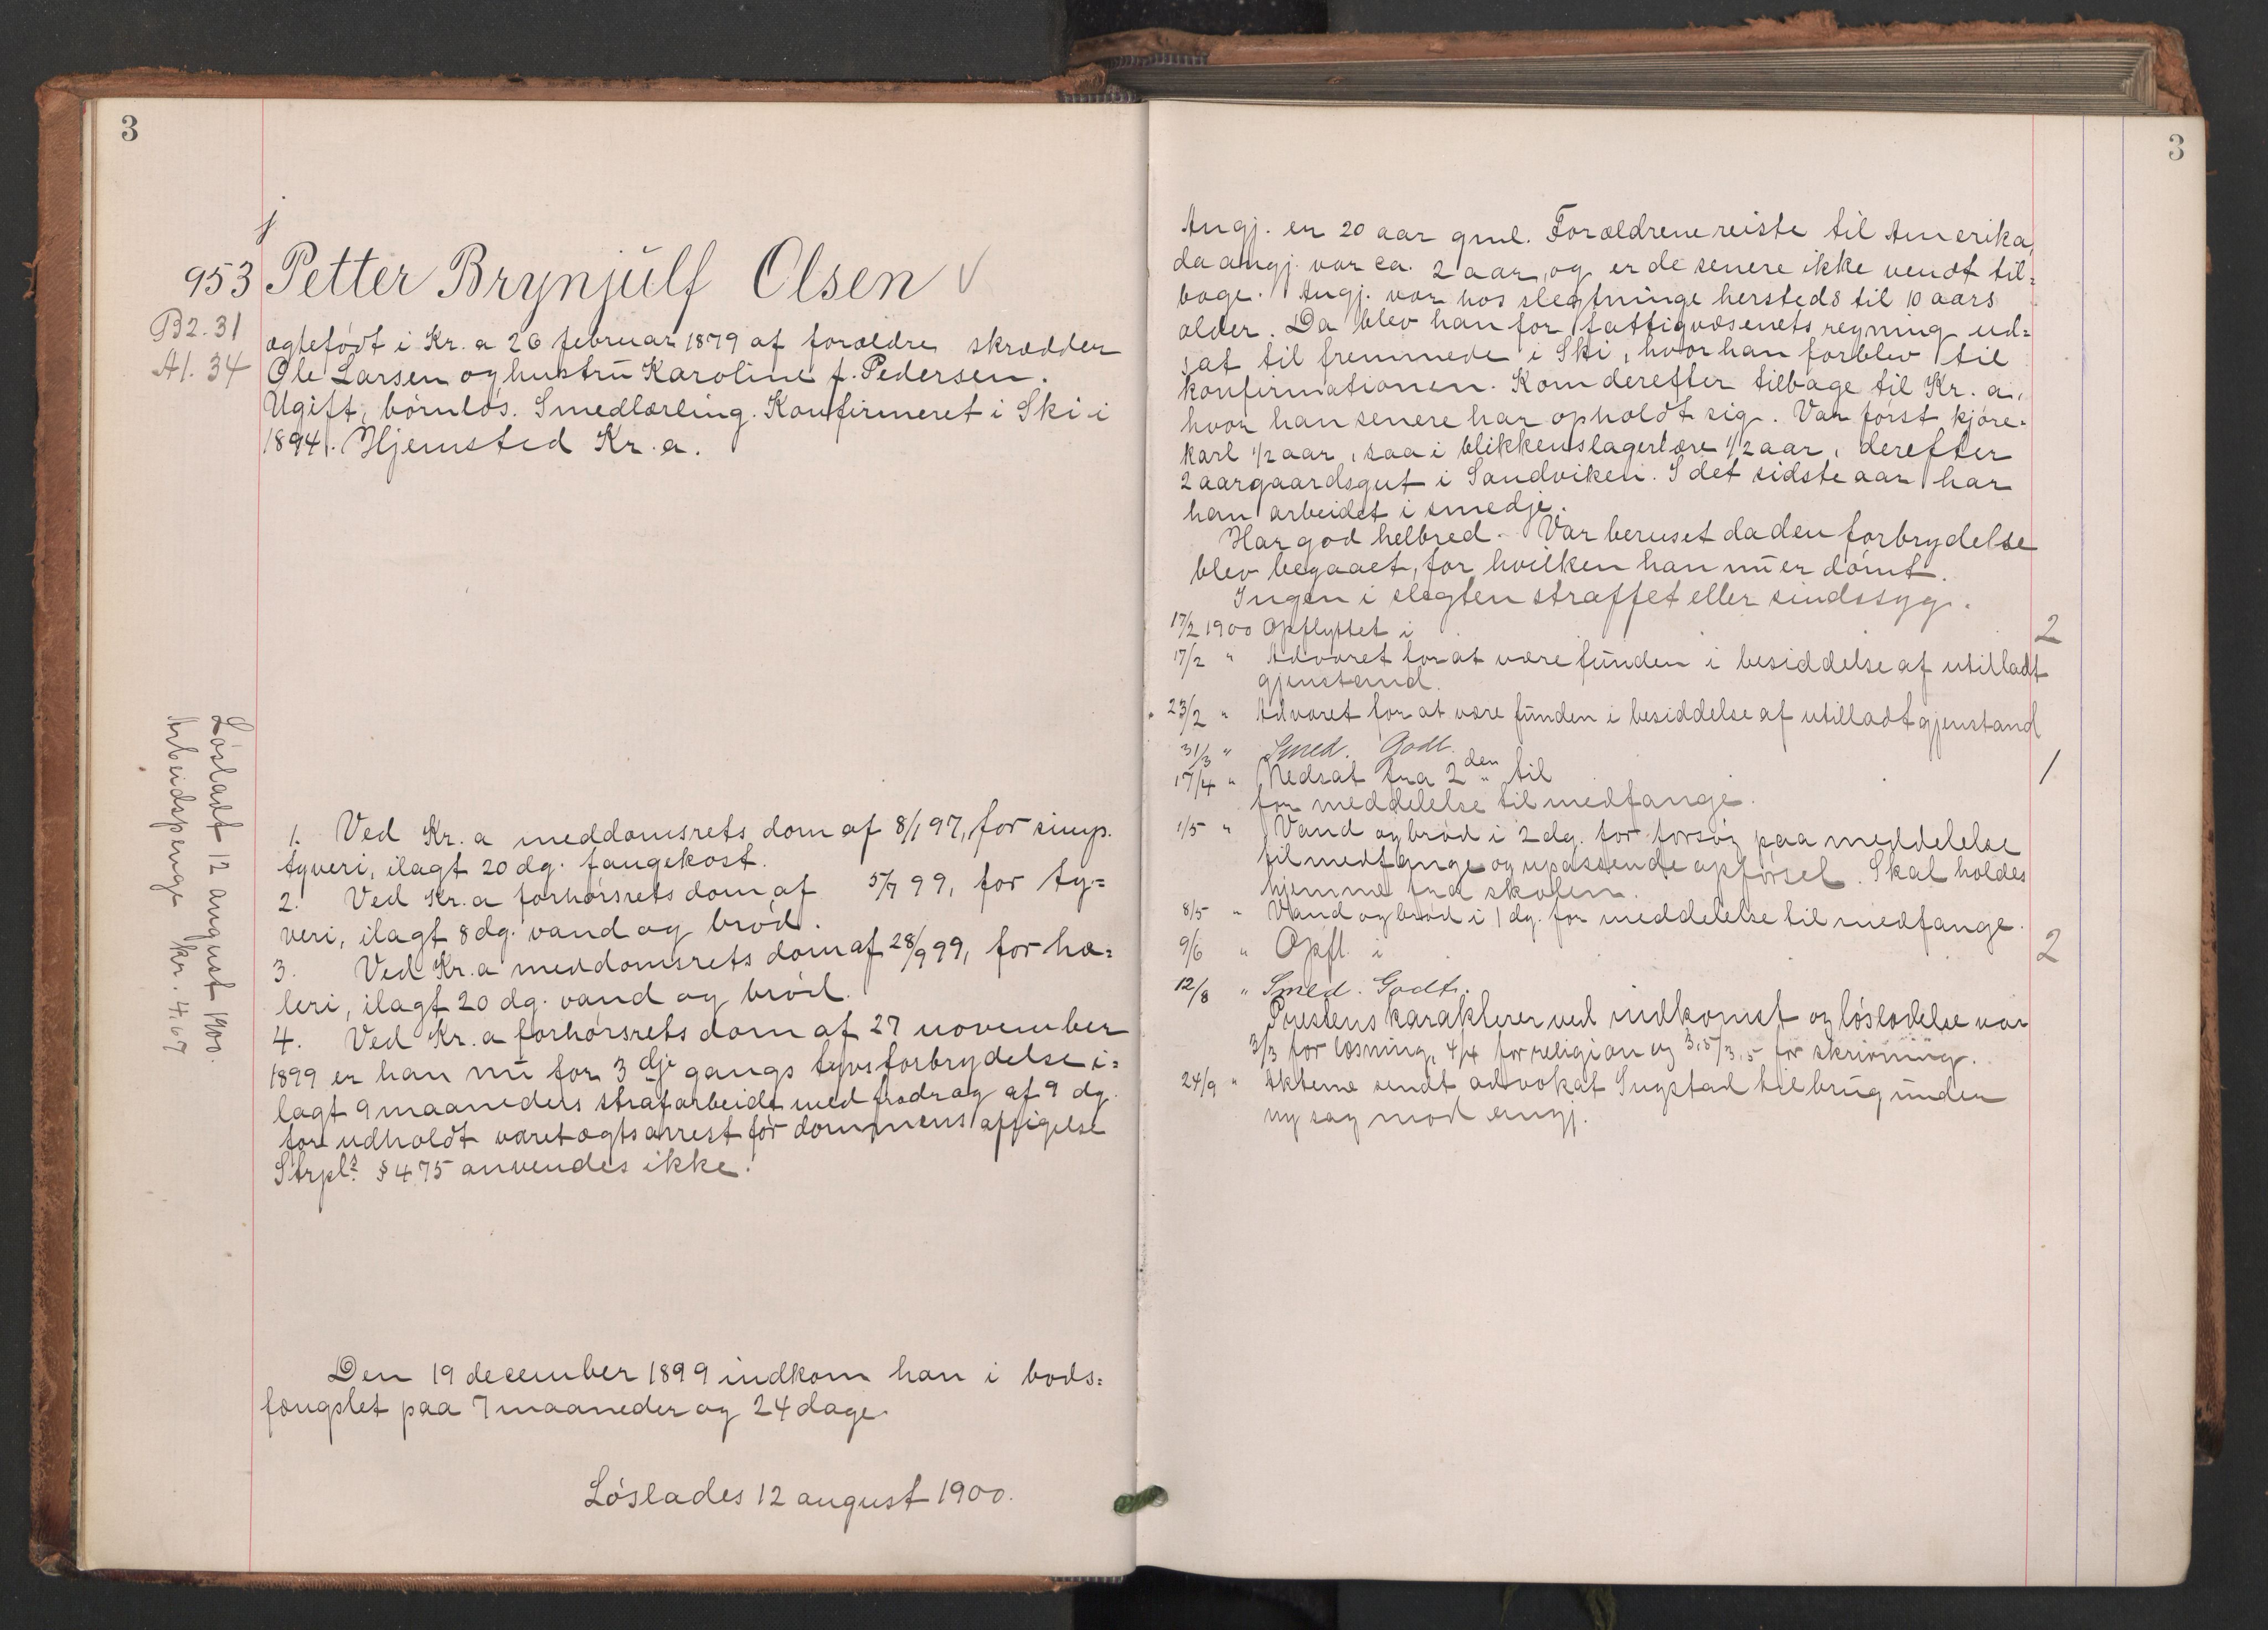 3
953 Petter Brynjulf Olsen
B2. 31
A1. 34
ægtefødt i Kr. a 26 februar 1879 af forældre skrædder
Ole Larsen og hustru Karoline f. Pedersen.
Ugift, børnløs. Smedlærling. Konfirmeret i Ski i
1894. Hjemsted Kr. a.
Løsladt 12 august 1900.
Arbeidspenge kr. 4,67
1. Ved Kr. a meddomsrets dom af 8/1 97, for simp.
tyveri, ilagt 20 dg. fangekost.
2. Ved Kr. a forhørsrets dom af 5/7 99, for ty=
veri, ilagt 8 dg. vand og brød.
3. Ved Kr. a meddomsrets dom af 28/9 99, for hæ=
leri, ilagt 20 dg. vand og brød.
4. Ved Kr. a forhørsrets dom af 27 november
1899 er han nu for 3dje gangs tyvsforbrydelse i=
lagt 9 maaneders strafarbeide med fradrag af 9 dg.
for udholdt varetægtsarrest før dommens afsigelse
Strpl. § 475 anvendes ikke.
Den 19 december 1899 indkom han i bods=
fængslet paa 7 maaneder og 24 dage.
Løslades 12 august 1900.
3
Angj. er 20 aar gml. Forældrene reiste til Amerika,
da angj. var ca. 2 aar, og er de senere ikke vendt til=
bage. Angj. var hos slegtninge hersteds til 10 aars
alder. Da blev han for fattigvæsenets regning ud=
sat til fremmede i Ski, hvor han forblev til
konfirmationen. Kom derefter tilbage til Kr. a,
hvor han senere har opholdt sig. Var først kjøre=
karl 1/2 aar, saa i blikkenslagerlære 1/2 aar, derefter
2 aar gaardsgut i Sandviken. I det sidste aar har
han arbeidet i smedje.
Har god helbred. Var beruset da den forbrydelse
blev begaaet, for hvilken han nu er dømt.
Ingen i slegten straffet eller sindssyg.
17/2 1900 Opflyttet i 2
17/2 " Advaret for at være funden i besiddelse af utilladt
gjenstand.
23/2 " Advaret for at være funden i besiddelse af utilladt gjenstand
31/3 " Smed. Godt.
17/4 " Nedsat fra 2den til 1
for meddelelse til medfange.
1/5 " Vand og brød i 2 dg. for forsøg paa meddelelse
til medfange og upassende opførsel. Skal holdes
hjemme fra skolen.
8/5 " Vand og brød i 1 dg. for meddelelse til medfange.
9/6 " Opfl. i 2
12/8 " Smed. Godt.
Prestens karakterer ved indkomst og løsladelse var
3/3 for læsning, 4/4 for religion og 3,5/3,5 for skrivning.
24/9 " Akterne sendt advokat til brug under
ny sag mod angj.